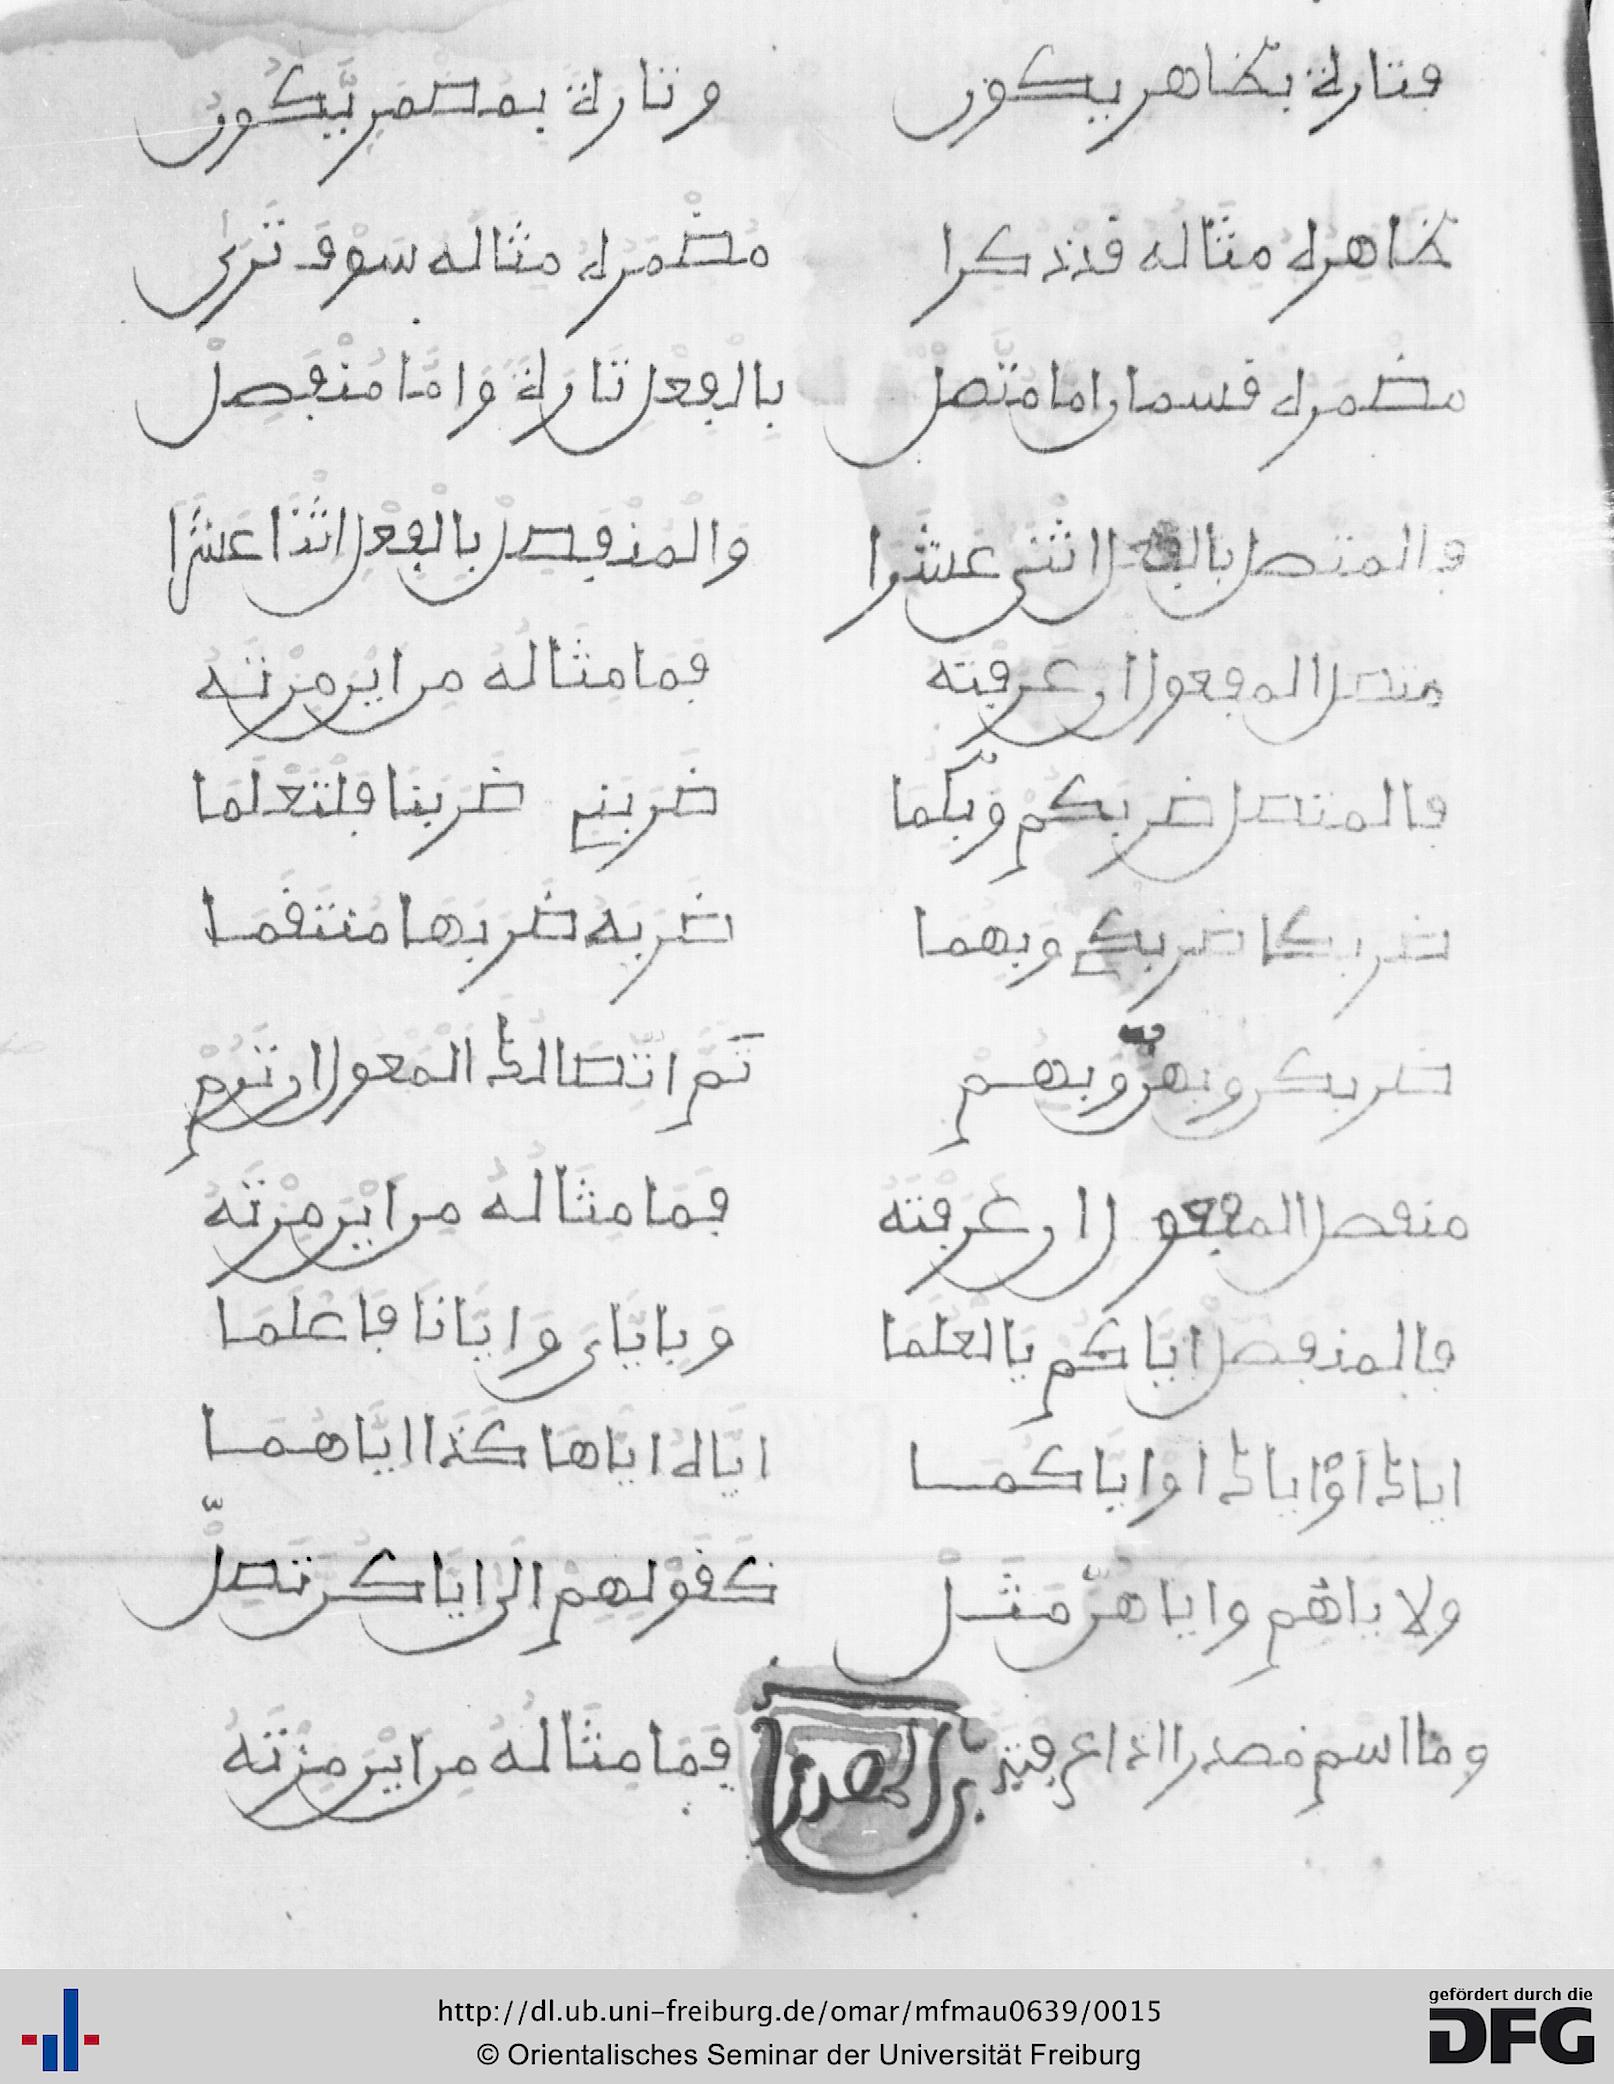 فتارة بظاهر يكون وتارة بمضمر يَّكُون
ظَاهِرُهُ مِثَالُهُ قَدْ ذُكِرَا مُضْمَرُهُ مِثَالُهُ سَوْفَ تَرَىٰ
مُضْمَرُهُ قسمان اما متّصل بِالْفِعْلِ تَارَةً وَامَّا مُنْفَصِلْ
والْمتصل بالفعل اثْنَى عَشَرَا وَالْمُنْفَصِلْ بِالْفِعْلِ اثْنَا عَشَرَا
متصل المفعول ان عَرَفْتَهُ فَمَا مِثَالُهُ مِنَ ايْنَ مِزْتَهُ
فالمتصل ضربكُمْ وَبِكُمَا ضَرَبَنِي ضَرَبَنَا فَلْتَعْلَمَا
ضربكَا ضربكِ وَبِهُمَا ضَرَبَهُ ضَرَبَهَا مُنْتَقَمَا
ضربكن وبهنّ وبِهُم تَمَّ اتِّصَالُكَ الْمَفْعُولَ ان تَرُمْ
منفصل المفعول ان عَرَفْتَهُ فَمَا مِثَالُهُ مِنَ ايْنَ مِزْتَهُ
فالمنفصل ايَّاكُمْ يَالعُلَمَا وَبِايَّاىَ وَايَّانَا فَاعْلَمَا
اياكَ اوْ اياكِ اوْ ايَّاكُمَا ايَّاهُ ايَّاهَا كَذَا ايَّاهُمَا
ولايَاهُم وايا هُنّ مَثَل كَقَوْلِهِمْ الَى ايَّاكُنَّ تَصِلْ
وما اسْم مصدر اذا عرفته فَمَا مِثَالُهُ مِنَ ايْنَ مِزْتَهُ
باب المصدر
http://dl.ub.uni-freiburg.de/omar/mfmau0639/0015
© Orientalisches Seminar der Universität Freiburg
gefördert durch die
DFG